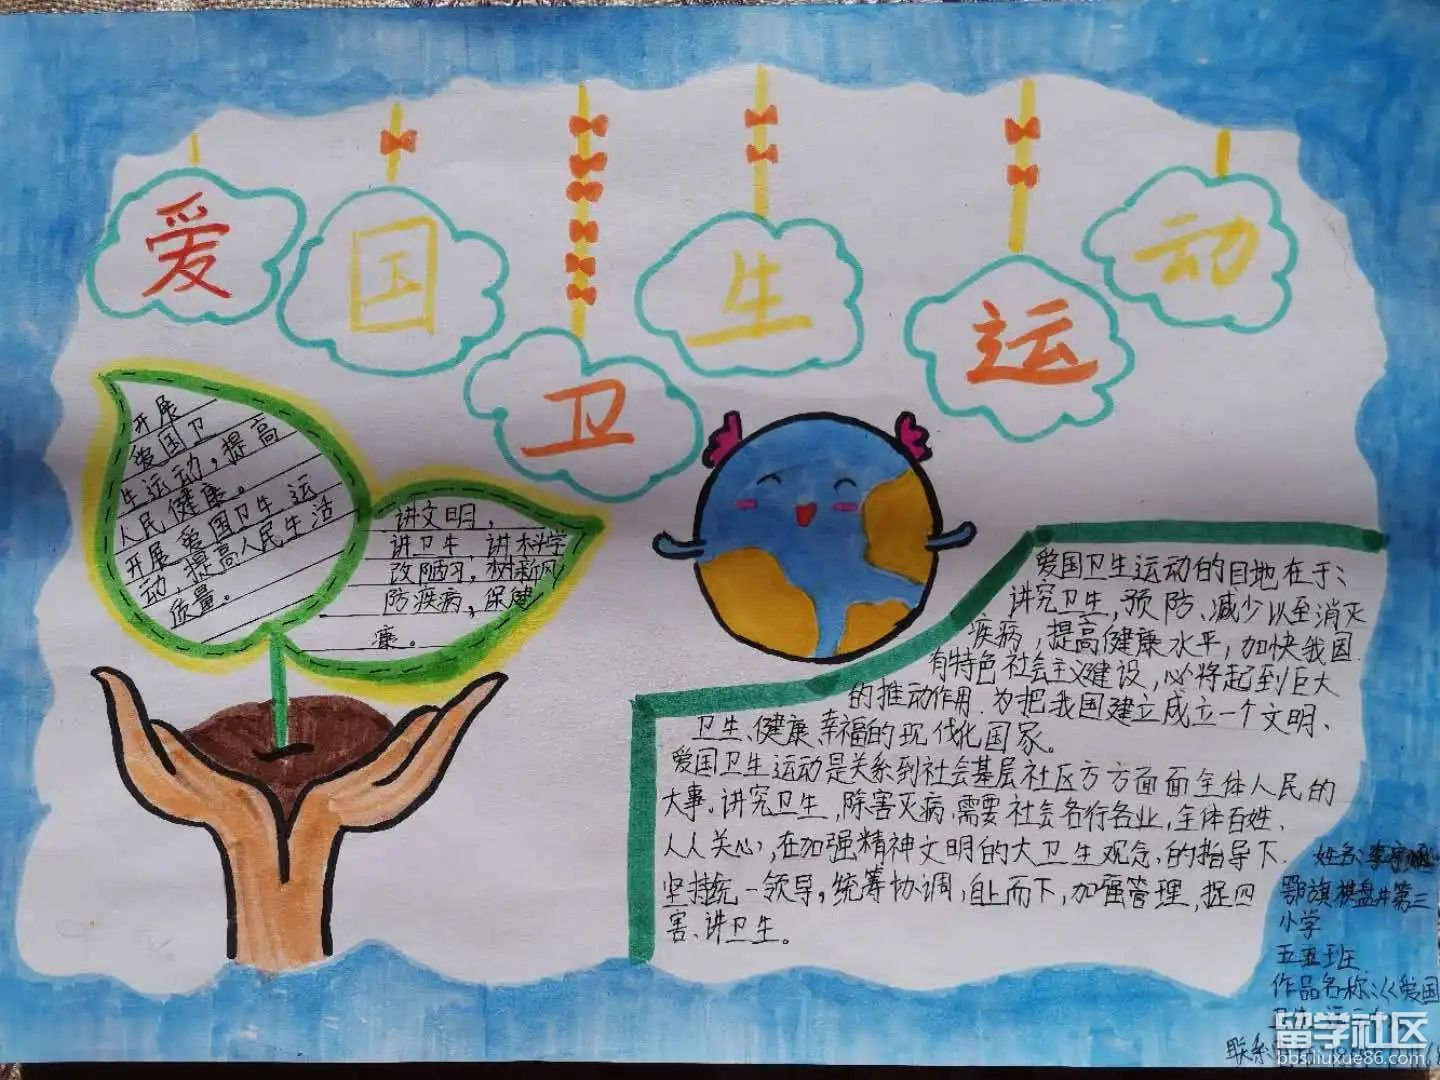 爱国卫生运动
开展
爱国卫
生运动，提高
人民健康。
开展爱国卫生运
动，提高人民生活
质量。
讲文明，
讲卫生，讲科学
改陋习，树新风
防疾病，保健
康。
爱国卫生运动的目地在于：
讲究卫生，预防、减少以至消灭
疾病，提高健康水平，加快我国
有特色社会主义建设，必将起到巨大
的推动作用．为把我国建立成立一个文明、
卫生、健康、幸福的现代化国家。
爱国卫生运动是关系到社会基层社区方方面面全体人民的
大事。讲究卫生，除害灭病，需要社会各行各业，全体百姓、
人人关心，在加强精神文明的大卫生观念，的指导下．
坚持统一领导，统筹协调，自上而下，加强管理，捉四
害、讲卫生。
姓名：李
鄂旗棋盘井第三
小学
五五班
作品名称：《爱国
联系
留学社区
bbs.liuxue86.com